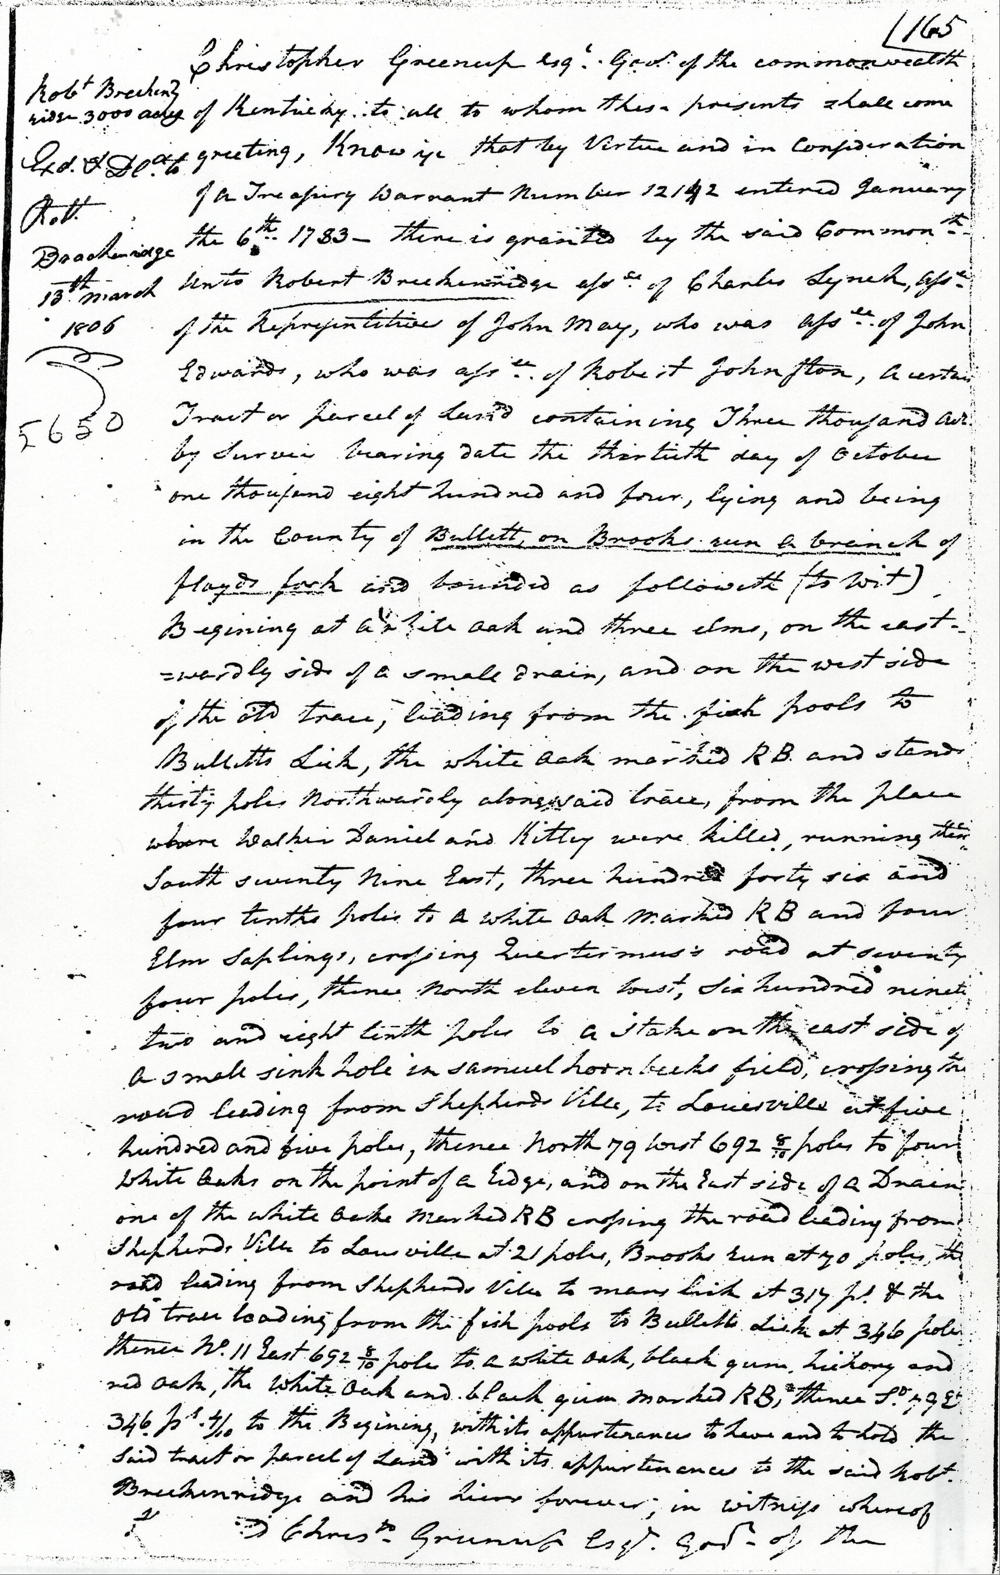 165
Christopher Greenup esqr. Govr. of the commonwealth
Robt Brecken
ridge 3000 acres
of Kentucky to all to whom these presents shall come
greeting, Know ye that by Virtue and in Consideration
Exd. & Dld. to
Robt.
Breckenridge
13th March
1806
5650
of a Treasury Warrant Number 12142 entered January
the 6th 1783 — there is granted by the said Commonth.
Unto Robert Breckenridge assee of Charles Lynch, asse
of the Representitives of John May, who was assee. of John
Edwards, who was assee. of Robert Johnston, a certain
Tract or parcel of Land containing Three thousand acr.
by Survei bearing date the thirtieth day of October
one thousand eight hundred and four, lying and being
in the County of Bullett, on Brooks run a branch of
floyds fork and bounded as followeth (to wit)
Begining at a white oak and three elms, on the east-
=wardly side of a small drain, and on the west side
of the old trace, leading from the fish pools to
Bulletts Lick, the white oak marked RB. and stands
thirty poles Northwardly along said trace, from the place
where Walker Daniel and Kitley were killed, running then
South seventy Nine East, three hundred forty six and
four tenths poles to a white oak marked RB and four
Elm Saplings, crossing Quertermus's road at seventy
four poles, thence North eleven west, six hundred ninety
two and eight tenth poles to a stake on the east side of
a small sink hole in samuel hornbecks field, crossing the
road leading from Shepherds Ville, to Louisville at five
hundred and five poles, thence North 79 West 692 8/10 poles to four
White Oaks on the point of a Ridge, and on the East side of a Drain
one of the white Oaks Marked RB crossing the road leading from
Shepherds Ville to Lousville at 21 poles, Brooks run at 70 poles, the
road leading from Shepherds Ville to mans lick at 317 ps. & the
Old trace leading from the fish pools to Bulletts Lick at 346 poles
thence No. 11 East 692 8/10 pole to a white oak, black gum, hickory and
red oak, the White Oak and black gum marked RB, thence So 79 Et
346 ps. 4/10 to the Begining, with its appurtenances to have and to hold the
said tract or parcel of Land with its appurtenances to the said Robt.
Breckenridge and his hiers forever; in witness whereof
Chrisr. Greenup Esqr. Govr. of the